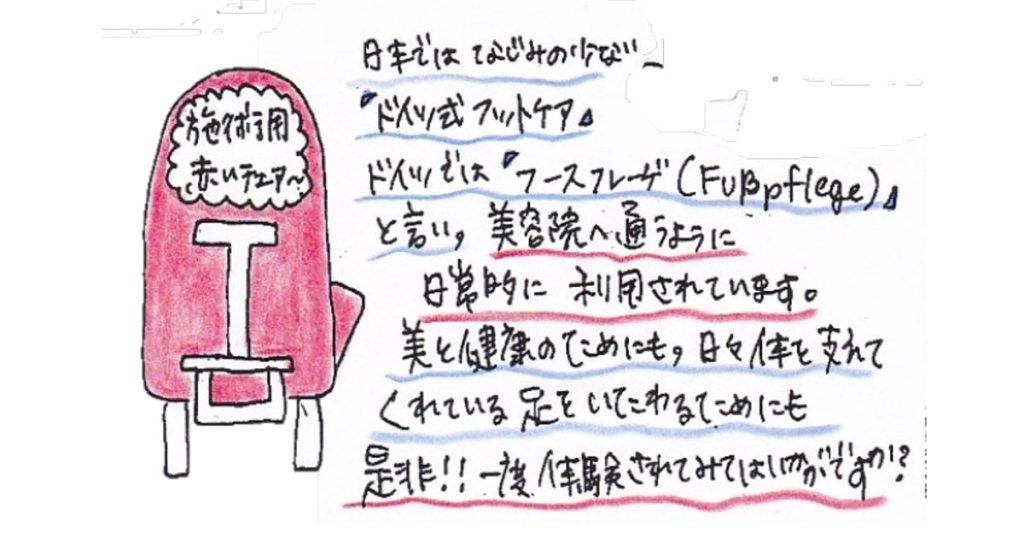 施術用
赤いチェア〜
日本ではなじみの少ない
『ドイツ式フットケア』
ドイツでは『フースフレーゲ(Fußpflege)』
と言い，美容院へ通うように
日常的に利用されています。
美と健康のためにも，日々体を支えて
くれている足をいたわるためにも
是非!!一度体験されてみてはいかがですか!?